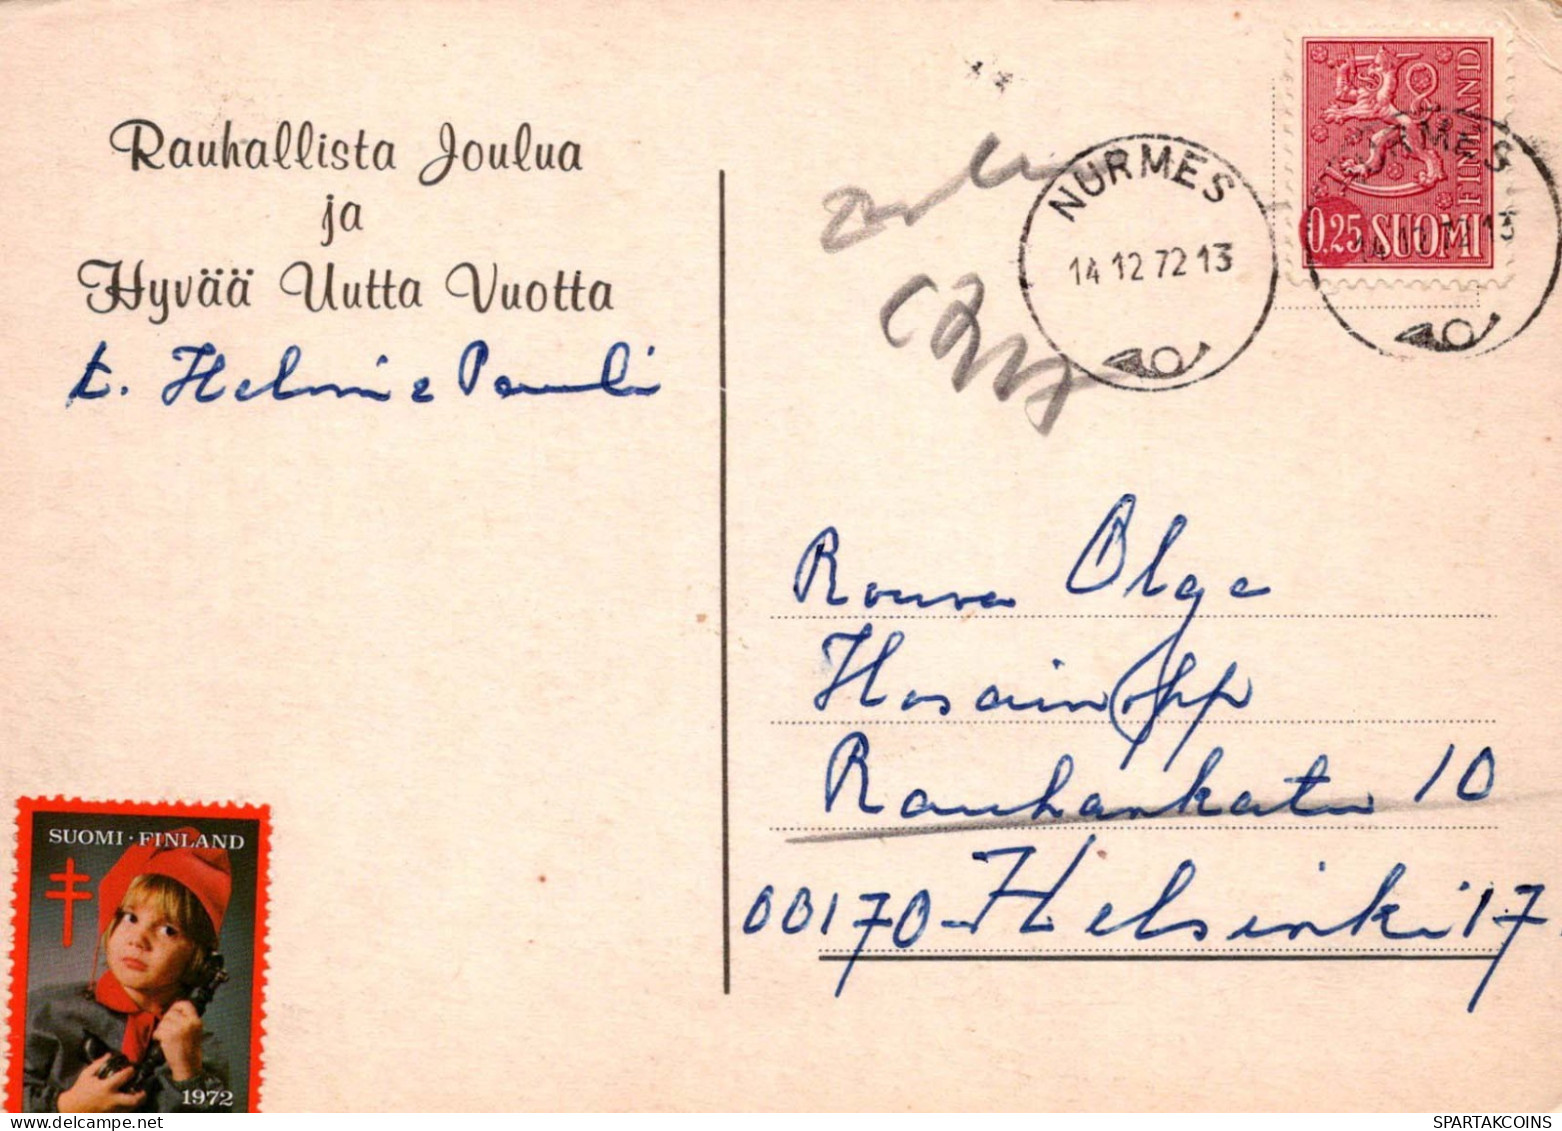 Rauhallista Joulua
ja
Hyvää Uutta Vuotta
t. Helmi e Pauli
NURMES
14 12 72 13
FINLAND
0,25 SUOMI
NURMES
14 12 72 13
Rouva Olga
Rauhankatu 10
00170 - Helsinki 17.
SUOMI · FINLAND
1972
SPARTAKCOINS